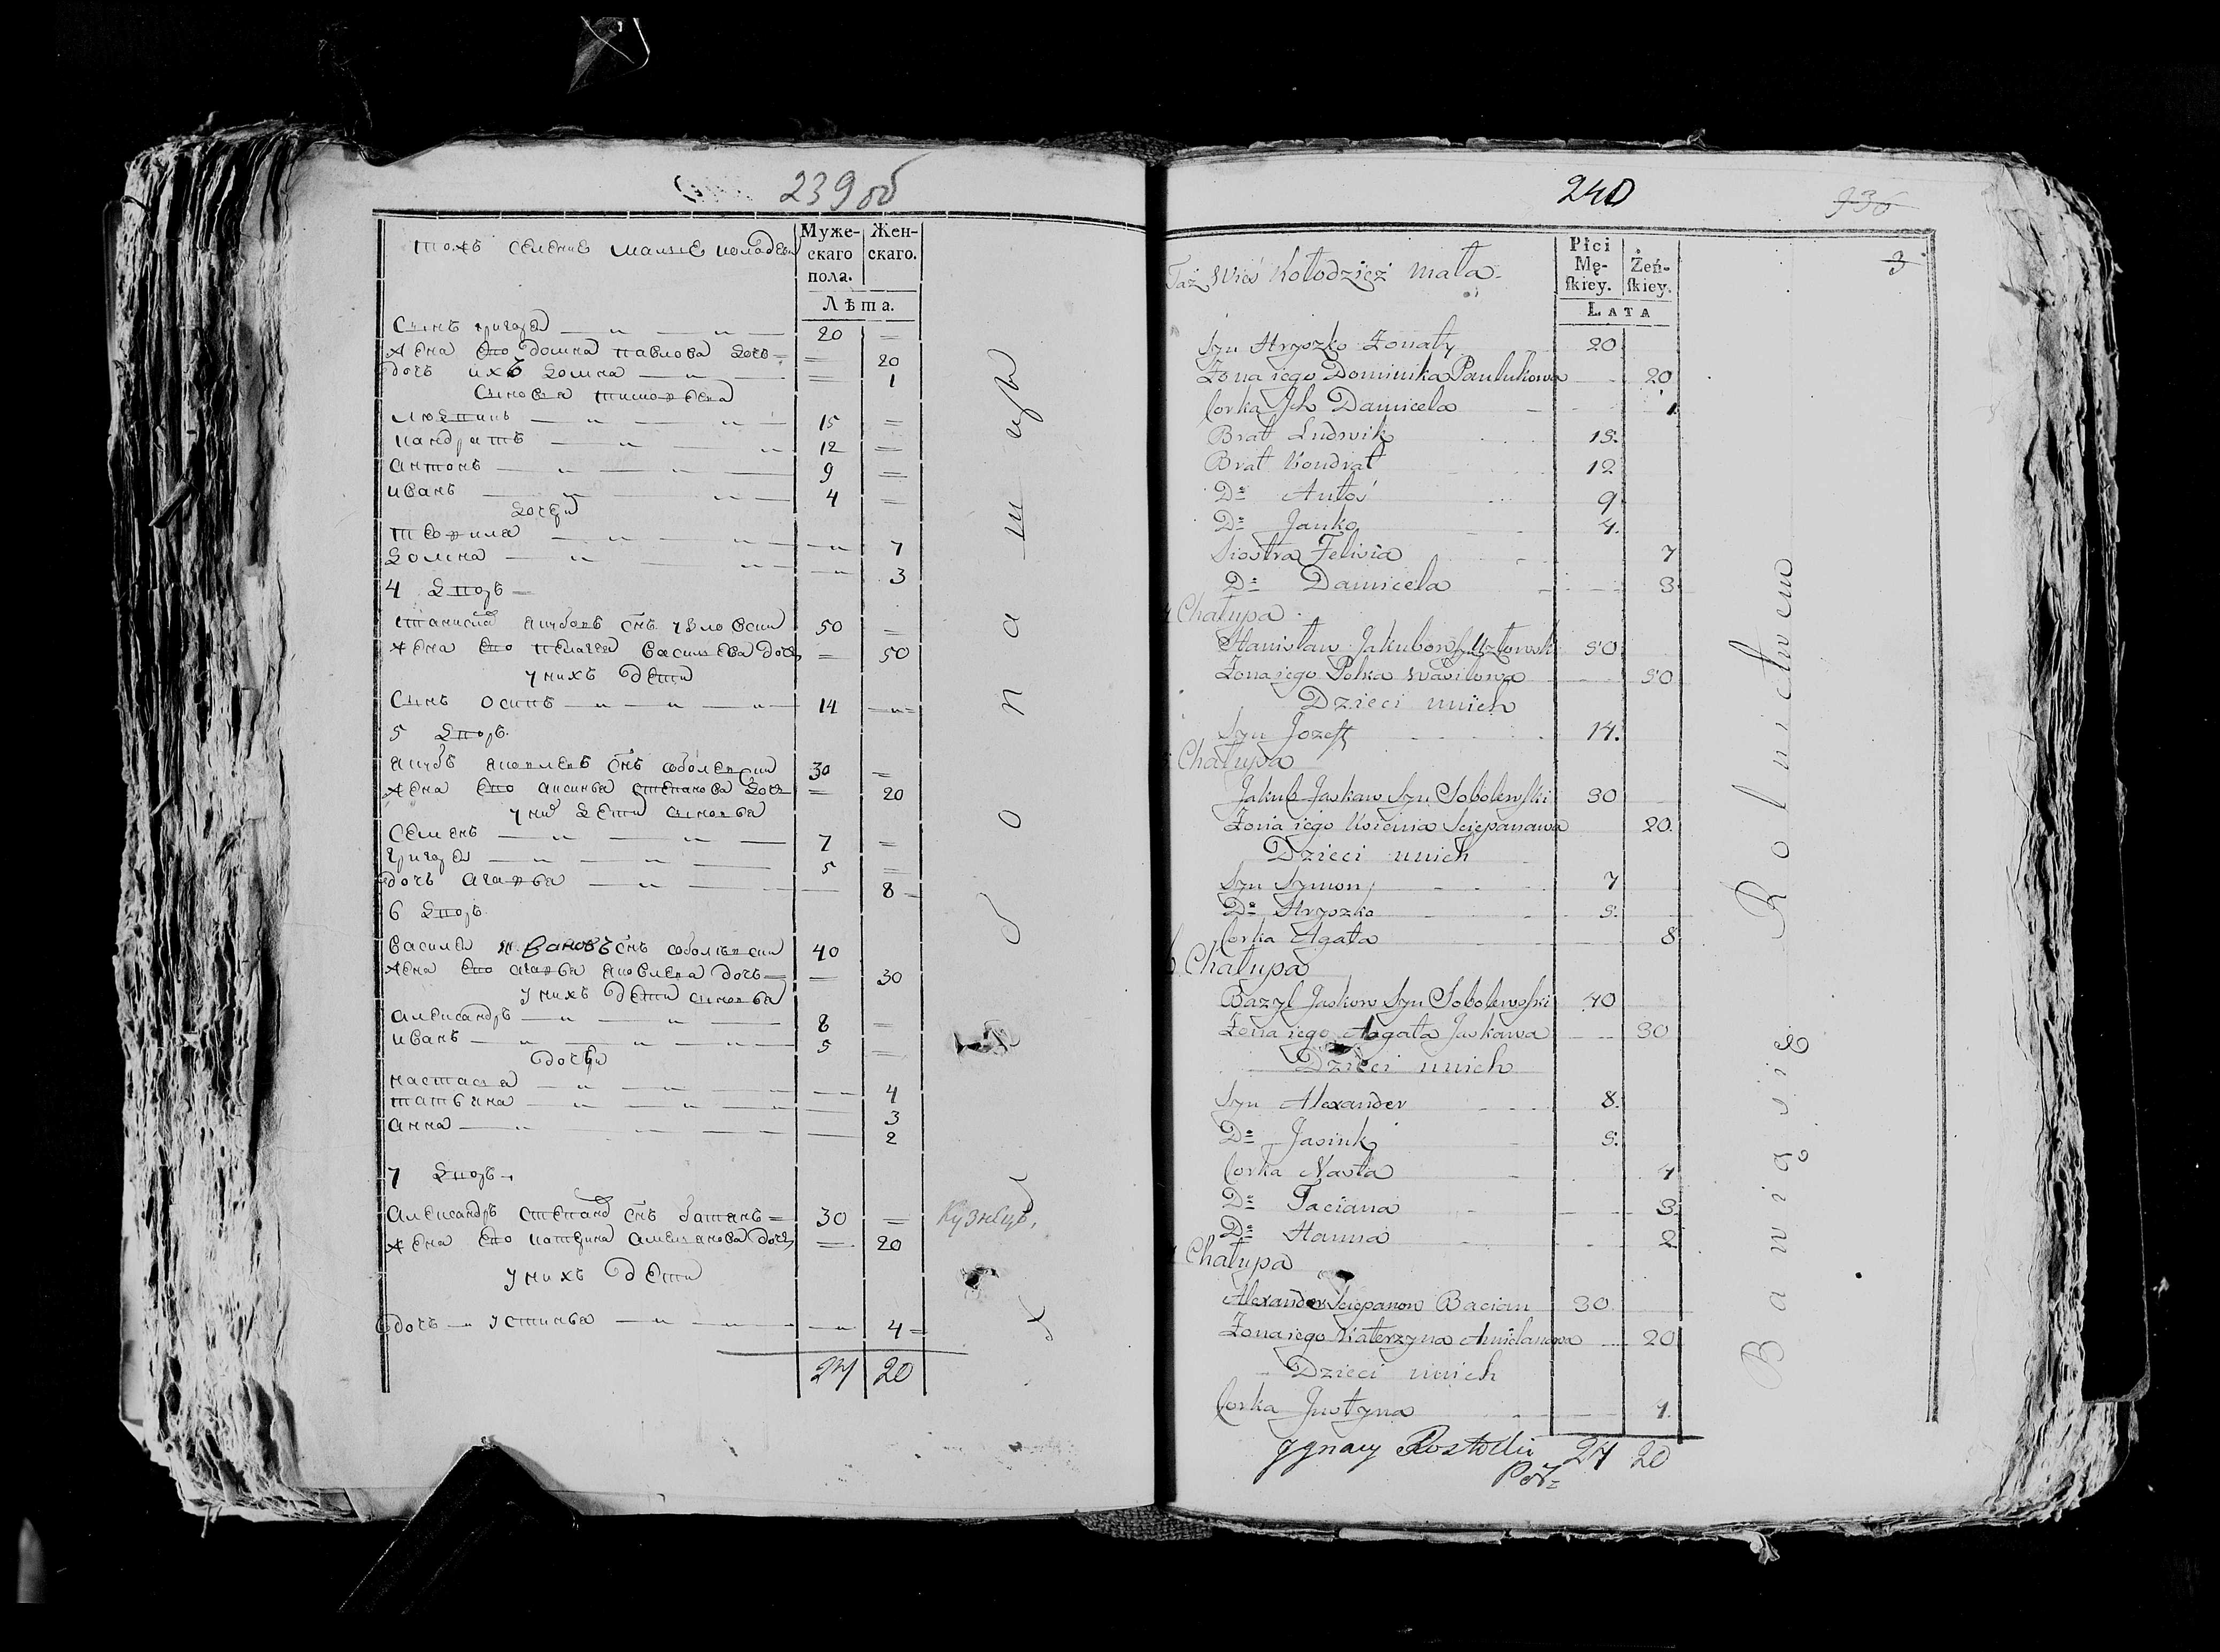 239 об
тожъ селение малые колодези
Муже-
скаго
пола.
Жен-
скаго.
Лѣта.
Сынъ григорей 20
жена его домна павлова дочь 20
дочь ихъ домна 1
Сыновья тимофѣя
людвикъ 15
кандратъ 12
антонъ 9
иванъ 4
дочери
теофила 7
домна 3
4 дворъ
станислав якубовъ снъ узловски 50
жена его пелагея васильева дочь 50
у нихъ дети
Сынъ осипъ 14
5 дворъ
якубъ яковлевъ снъ соболевски 30
жена его аксинья степанова дочь 20
у них дети сыновья
Семенъ 7
григорей 5
дочь агафья 8
6 дворъ
василей Ивановъ снъ соболевски 40
жена его агафья яковлева дочь 30
у нихъ дети сыновья
александръ 8
иванъ 5
дочери
настасья 4
татьяна 3
анна 2
7 дворъ
александръ степанов снъ батянъ 30
жена его катерина амельянова дочь 20
у нихъ дети
дочь устинья 4
24 20
Кузнецъ
хлебопашцы
240
936
3
Płci
Mę-
skiey.
Żeń-
skiey.
LATA
Taż Wieś Kołodzież mała
Syn Hryszko Żonaty 20
Żona iego Dominika Paulukowa 20
Corka Ich Daniicela 1
Brat Ludwik 15.
Brat Kondrat 12
Do Antoś 9
Do Janko 4.
Siostra Felicia 7
Do Daniicela 3
4 Chałupa
Stanisław Jakubow Syn Uzłowski 50
Żona iego Polka Wasilowa 50
Dzieci unich
Syn Jozeff 14.
5 Chałupa
Jakub Jaskow Syn Sobolewski 30
Żona iego Xienia Sciepanawa 20
Dzieci unich
Syn Symon 7
Do Hryszko 5.
Corka Agata 8
6 Chałupa
Bazyl Jaskow Syn Sobolewski 40
Żona iego Agata Jaskawa 30
Dzieci unich
Syn Alexander 8.
Do Jasiuk 5.
Corka Nasta 4
Do Taciana 3
Do Hanna 2
7 Chałupa
Alexander Sciepanow Bacian 30
Żona iego Katerzyna Amielanowa 20
Dzieci unich
Corka Justyna 4.
24 20
Bawią się Rolnictwem